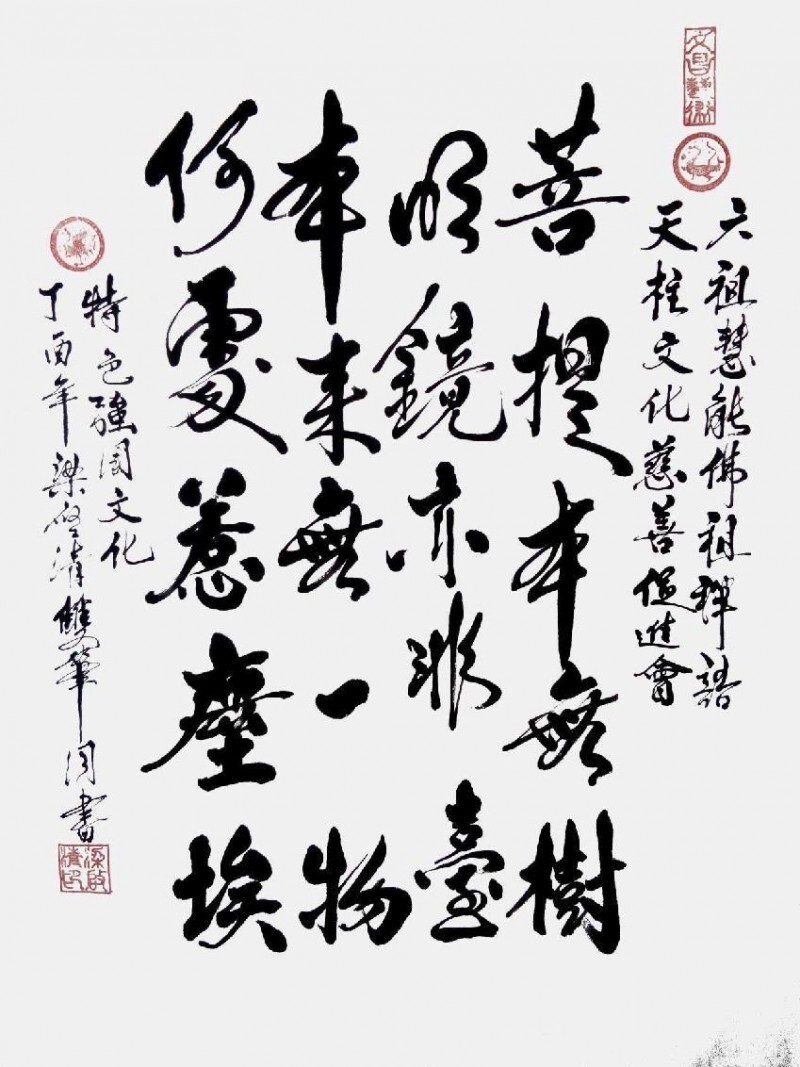 六祖慧能佛祖禅語
天柱文化慈善促進會
菩提本無樹
明鏡亦非臺
本来無一物
何處惹塵埃
特色強國文化
丁酉年梁啓清雙筆同書